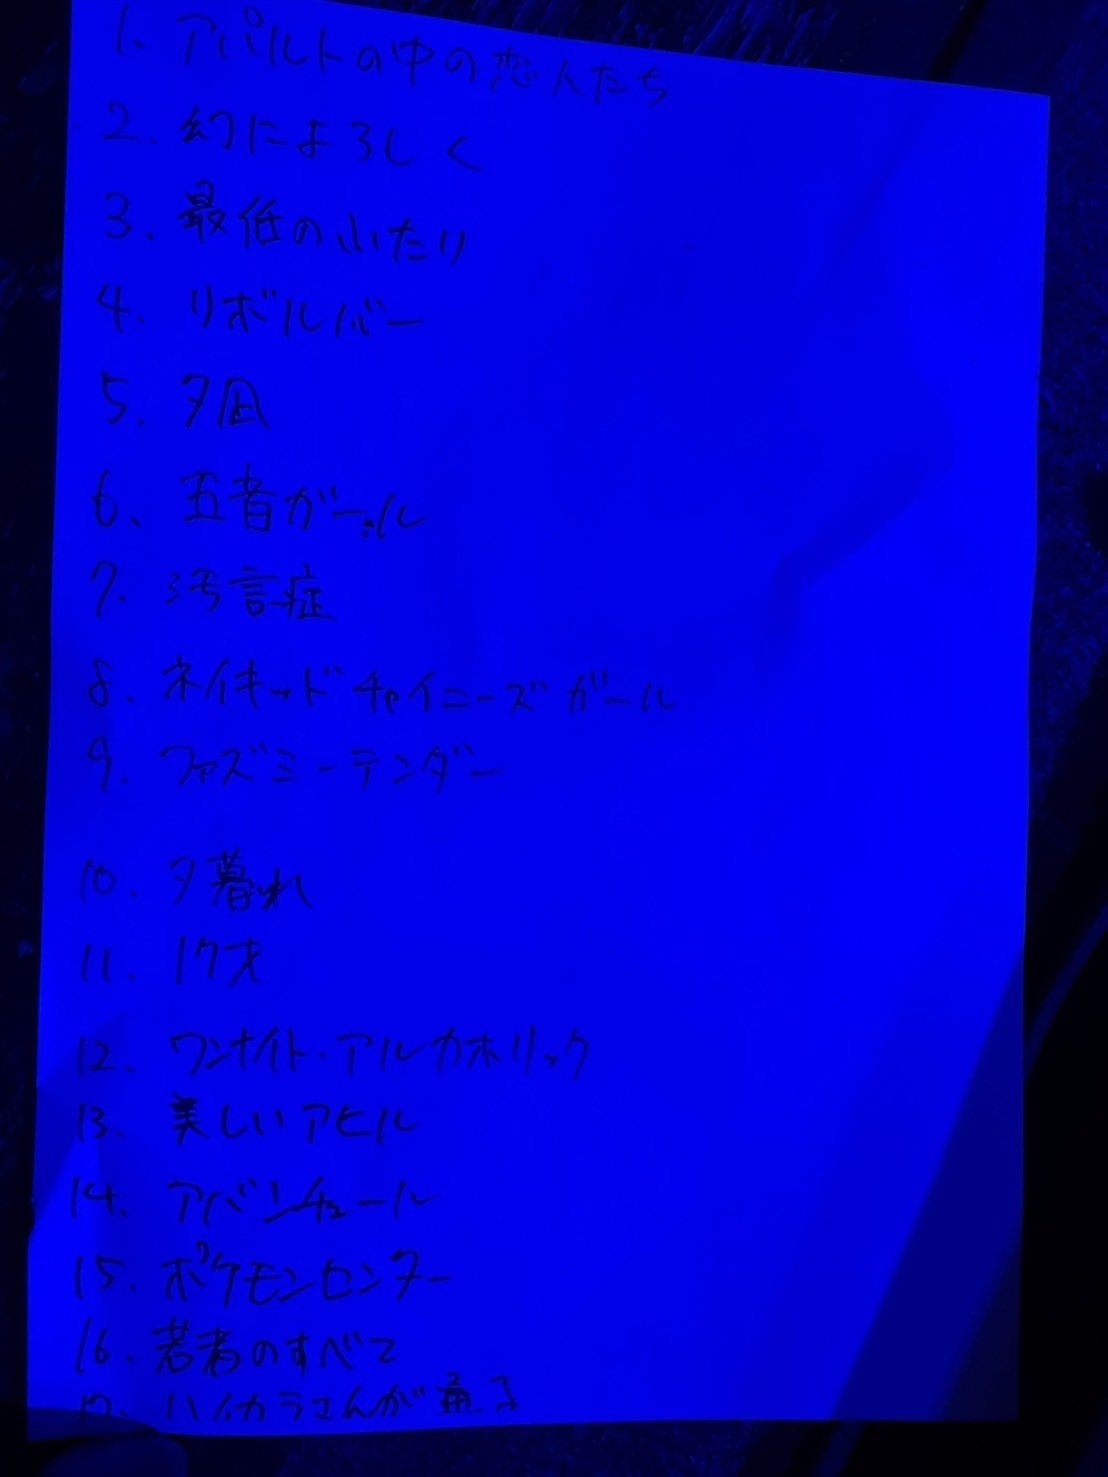 1. アパルトの中の恋人たち
2. 幻によろしく
3. 最低のふたり
4. リボルバー
5. 夕凪
6. 五音ガール
7. 汚言症
8. ネイキッドチャイニーズガール
9. ファズミーテンダー
10. 夕暮れ
11. 17才
12. ワンナイト・アルカホリック
13. 美しいアヒル
14. アバンチュール
15. ポケモンセンター
16. 若者のすべて
17. ハイカラさんが通る